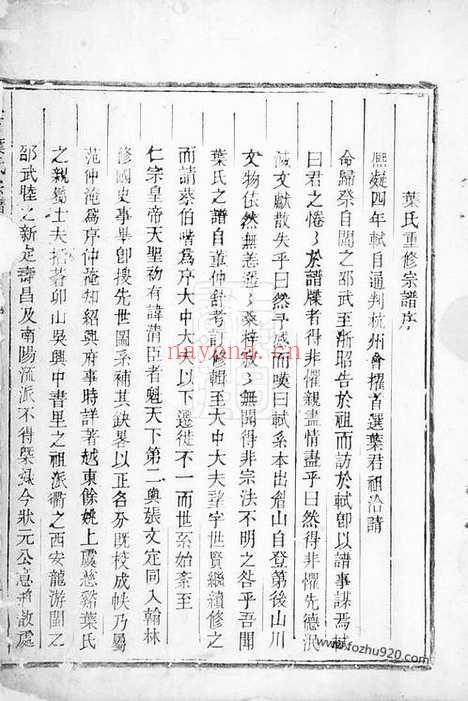 葉氏重修宗譜序
熙寧四年軾自通判杭州會擢首選葉君祖洽請
命歸祭自閩之邵武至浙昭告於祖而訪於軾卽以譜事謀焉軾
曰君之惓〻於譜牒者得非懼親盡情盡乎曰然得非懼先德泯
滅文獻散失乎曰然予感而嘆曰軾系本出眉山自登第後山川
文物依然無恙遥〻桑梓寂〻無聞得非宗法不明之咎乎吾聞
葉氏之譜自董仲舒考訂修輯至大中大夫望字世賢繼續修之
而請蔡伯喈為序大中大夫以下遷徙不一而世系始紊至
仁宗皇帝天聖初有諱清臣者魁天下第二與張文定同入翰林
修國史事畢卽搜先世圖系補其缺畧以正各分旣校成帙乃屬
范仲淹爲序仲淹知紹興府事時詳著越東餘姚上虞慈谿葉氏
之親獨士夫搢著卯山吳興中書里之祖派衢之西安龍游閩之
邵武睦之新定壽昌及南陽流派不得槩錄今狀元公意將散處
www.nayona.cn
www.fozhu920.com